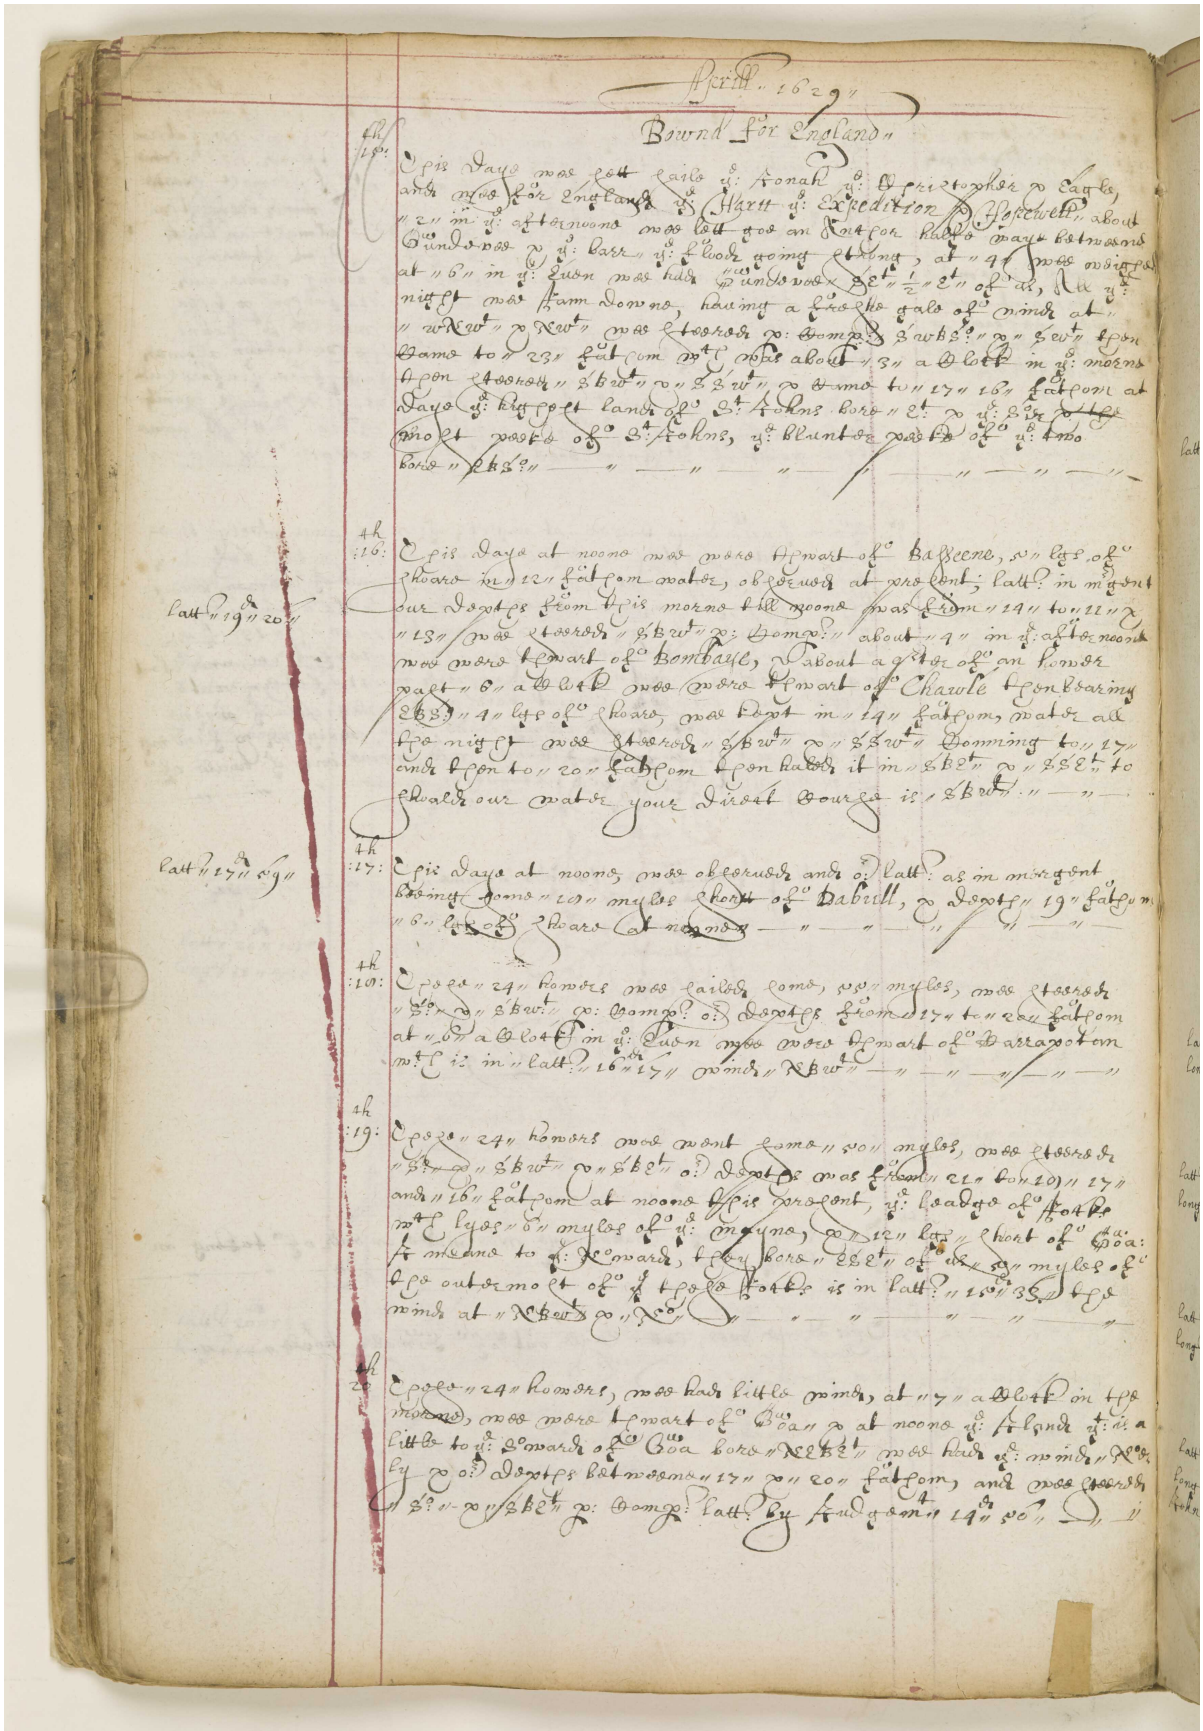 Aprill 1629
Bownd for England
th
15:
This daye wee sett saile ye: Jonah ye: Christopher & Eagle,
and wee for England ye: Hartt ye: Expedition & Hopewell" about
"2" in ye: afternoone wee lett goe an Anchor halfe waye betweene
Gundevee & ye: barr" ye: flood going strong, at "4" wee weighed
at "6" in ye: Even wee had Gundevee" SEt" ½" Et" of us, All ye:
night wee rann downe, having a freshe gale of wind at"
"wNwt" & Nwt" wee steered p: Comp:s SwBSo" & "Swt" then
Came to "23" fathom wch was about "3" a Clock in ye: morne
then steered "SBwt" & "SSwt" & Came to "17" 16" fathom at
daye ye: highest land of St: Johns bore" Et: & ye: Soer & the
most peeke of St: Johns, ye: blunter peeke of ye: two
bore" EBSo"
th
:16:
This daye at noone wee were thwart of Basseene, 5" lgs of
shoare in "12" fathom water, observed at present; latt: in mrgent
latt: "19d" 20"
our depths from this morne till noone was from "14" to "11" &
"13" wee steered "SBwt" p: Comp:s" about "4" in ye: afternoone
wee were thwart of Bombaye, & about a qrter of an hower
past "6" a Clock wee were thwart of Chawle then bearing
EBS:o "4" lgs of shoare, wee kept in "14" fathom, water all
the night wee steered "SBwt" & "SSwt" Comming to "17"
and then to "20" fathom then haled it in "SBEt" & "SSEt" to
shoald our water your direct Course is "SBwt"
th
:17:
This daye at noone, wee observed and or: latt: as in mergent
latt: "17d" 59"
beeing some "10" myles short of Dabull, & depth "19" fathom
"6" lgs of shoare at noone
th
:18:
These "24" howers wee sailed some, 55" myles, wee steered
"So" & "SBwt" p: Comp:s or: depths from "17" to "20" fathom
at "6" a Clock in ye: Even wee were thwart of Carrapotan
wch is in "latt: "16d" 17" wind "NBwt"
th
:19:
These "24" howers wee went some "50" myles, wee steered
"So" & "SBwt" & "SBEt" or: depths was from "21" to "19" 17"
and "16" fathom at noone this present, ye: leadge of rocks
wch lyes "6" myles of ye: mayne, & "12" lgs" short of Goa:
I meane to ye: Noward, they bore "ESEt" of us "5" myles of
the outermost of ye these Rocks is in latt: "15d" 33" the
wind at "NBwt" & "No"
th
20
These "24" howers, wee had little wind, at "7" a Clock in the
morne, wee were thwart of Goa" & at noone ye: Island yt: is a
little to ye: Soward of Goa bore "NEBEt" wee had ye: wind "Noer
ly & or: depths betweene "17" & "20" fathom, and wee steered
"So" & "SBEt" p: Comp: latt: by Judgemt "14d" 56"